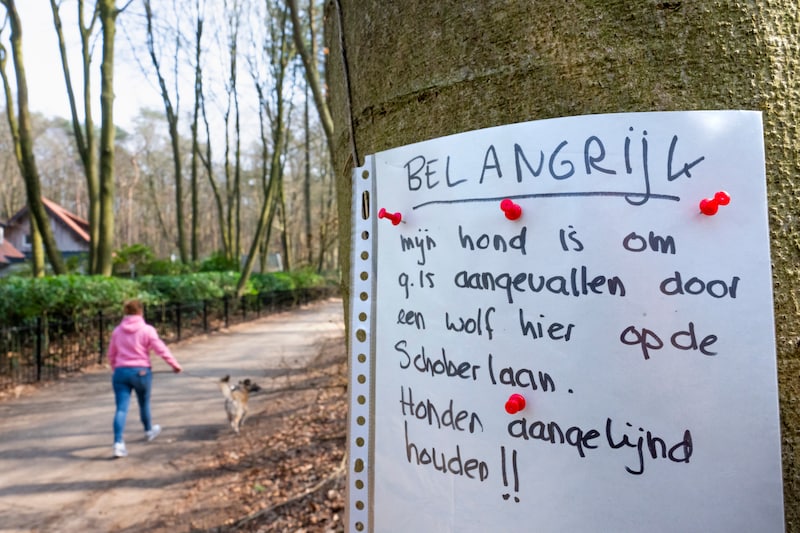 BELANGRIJK
mijn hond is om
9.15 aangevallen door
een wolf hier op de
Schoberlaan.
Honden aangelijnd
houden!!